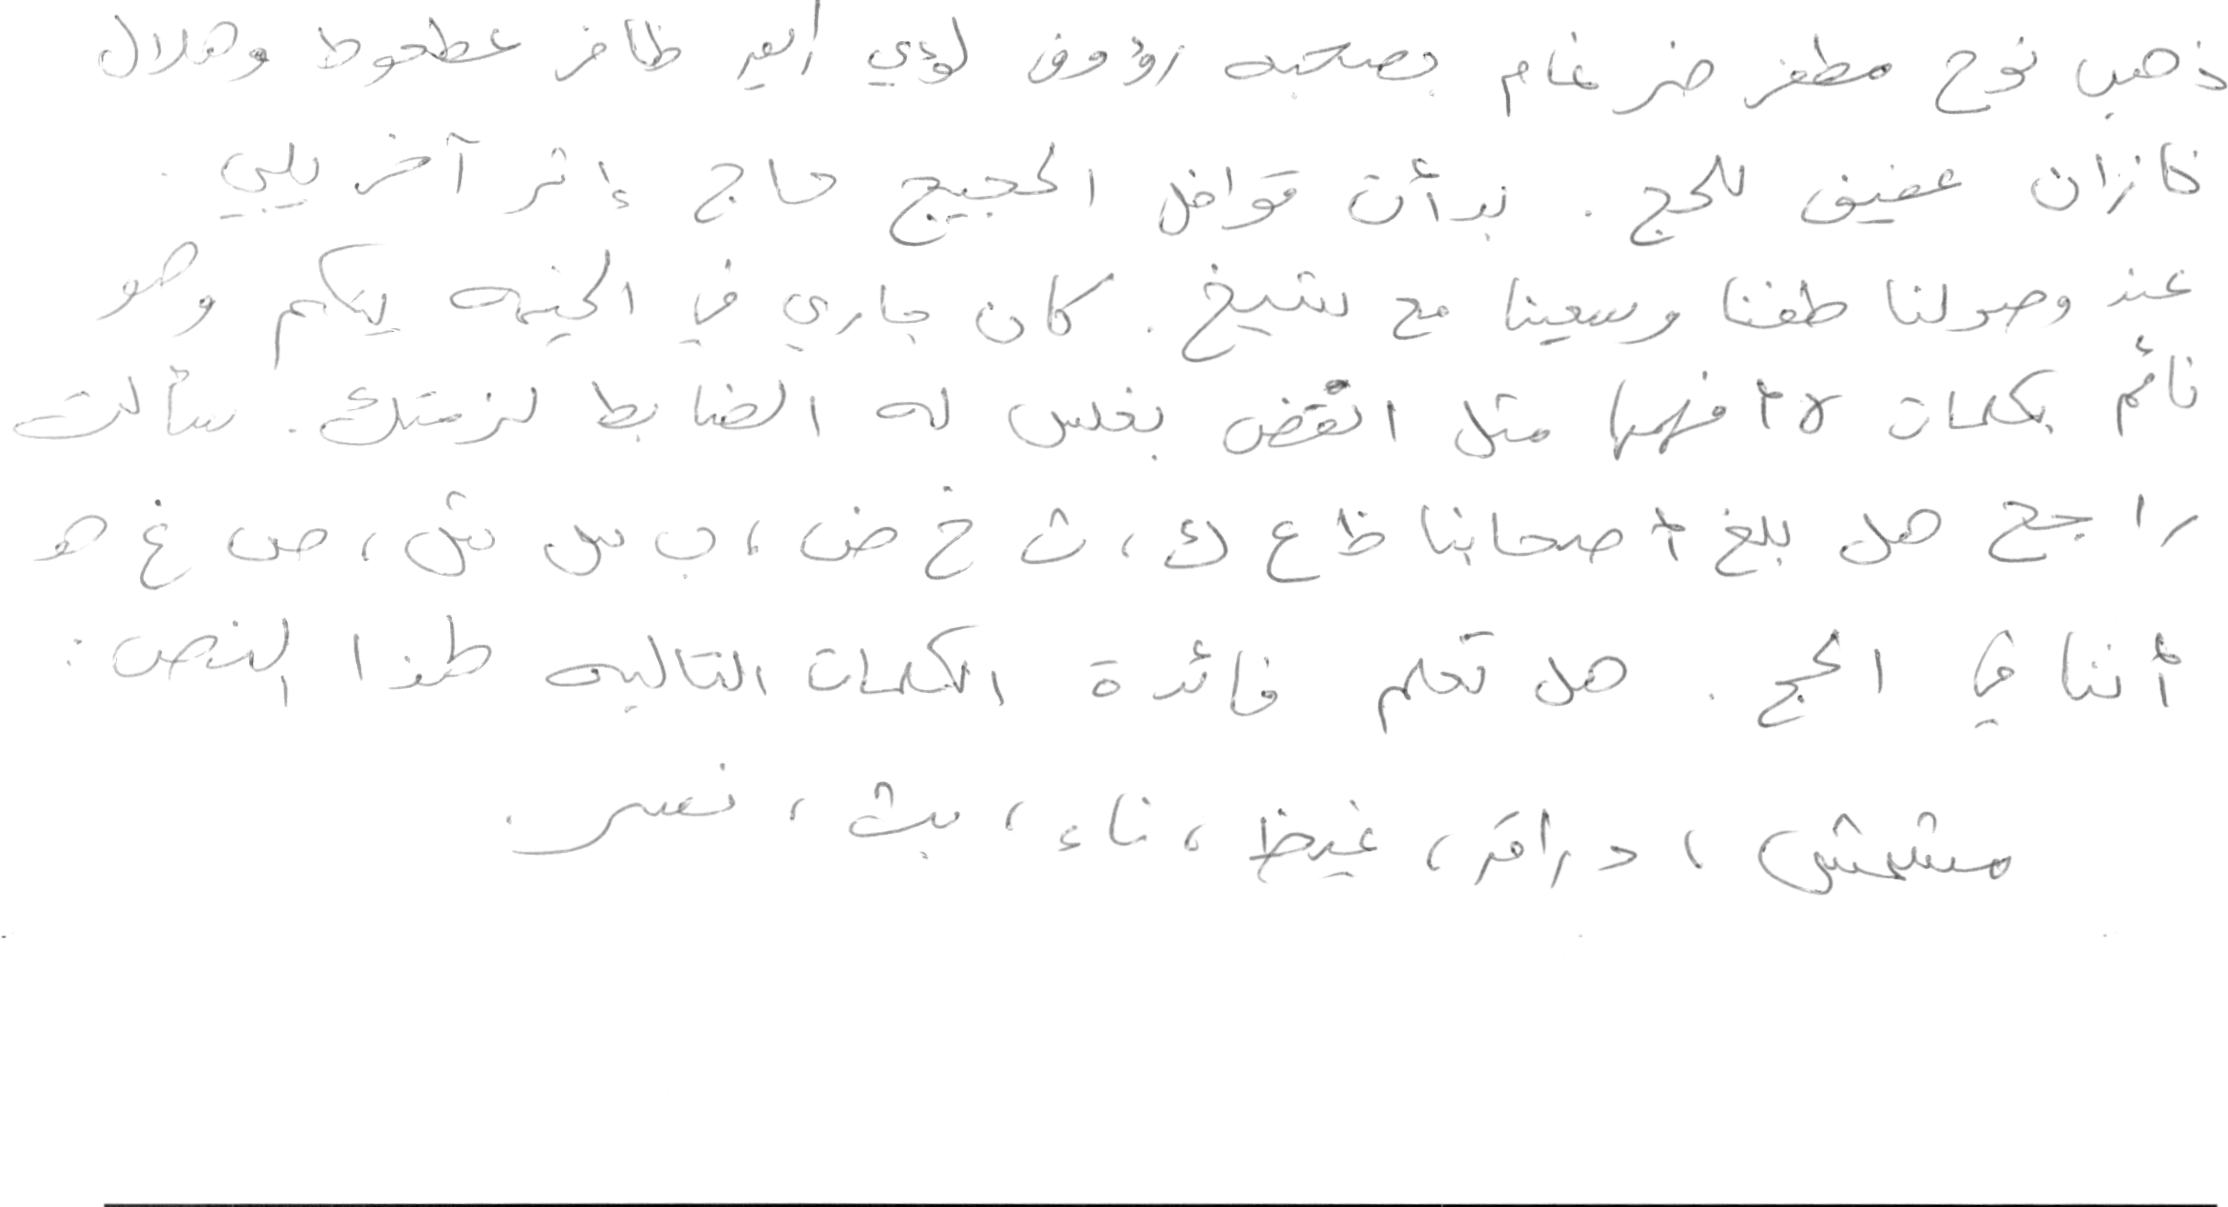 ذهب نوح مظفر ضرغام بصحبه رؤوف لؤي أيهم ظافر عطعوط وهلال
خازان عفيف للحج . بدأت قوافل الحجيج حاج إثر آخر يلبي .
عند وصولنا طفنا وسعينا مع شيخ . كان جاري في الخيمه يتكلم وهو
نائم بكلمات لا أفهمها مثل انقض بغلس له الضابط لزمتك . سألت
راجح هل بلغ أصحابنا ظ ع ك ، ث خ ض ، ب س ش ، ص غ هـ
أننا في الحج . هل تعلم فائدة الكلمات التاليه لهذا النص :
مشمش ، دراقر ، غيظ ، ناء ، بث ، نفس .